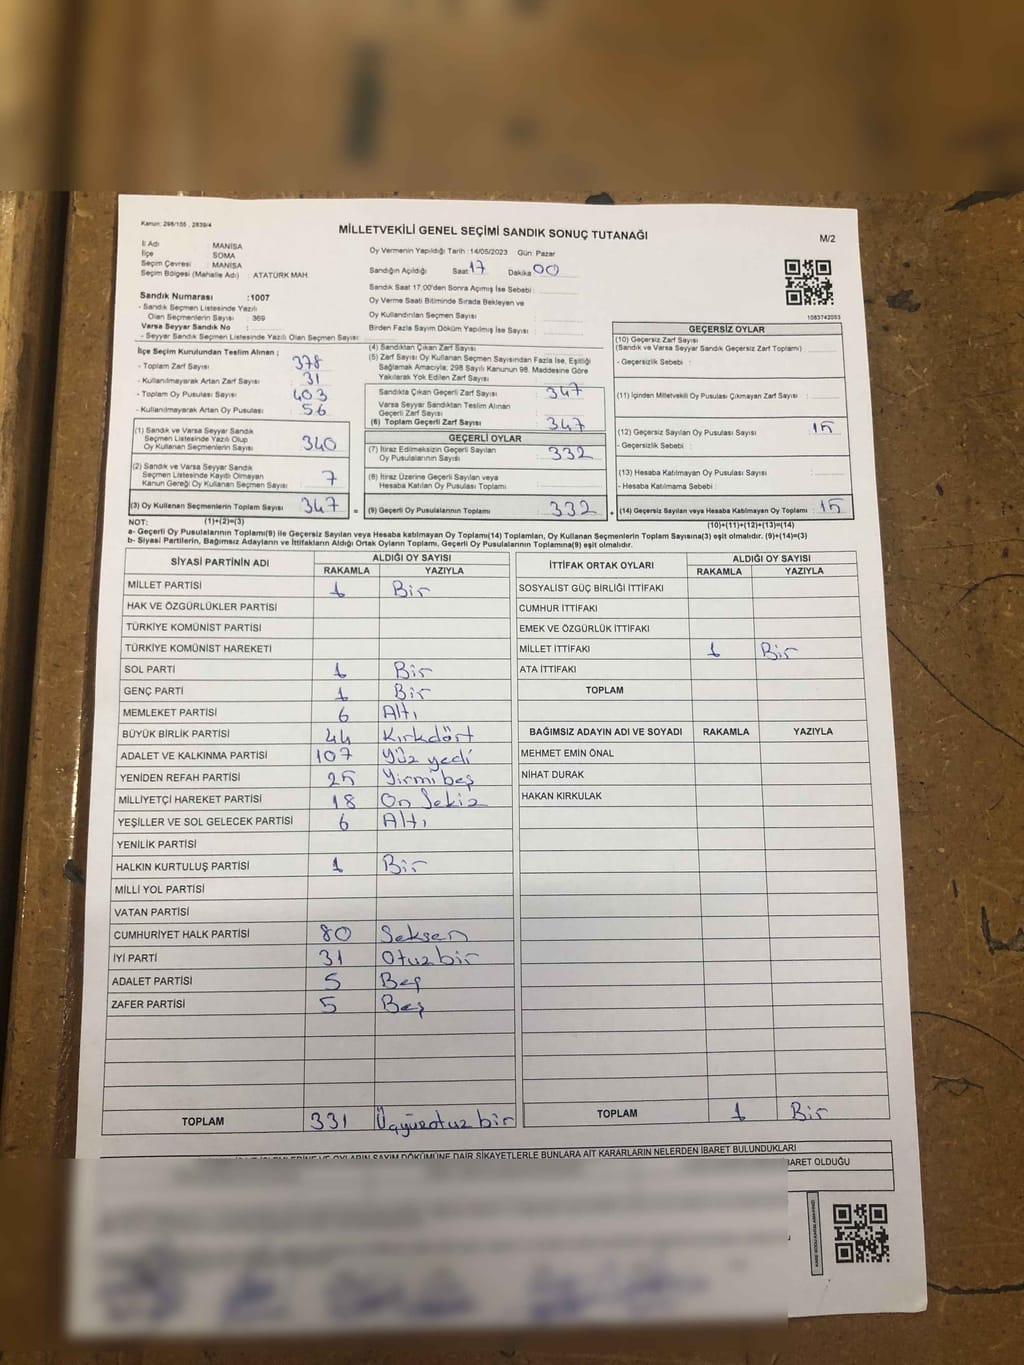 Kanun: 298/105 , 2839/4
MİLLETVEKİLİ GENEL SEÇİMİ SANDIK SONUÇ TUTANAĞI
M/2
İl Adı MANİSA
İlçe SOMA
Seçim Çevresi MANİSA
Seçim Bölgesi (Mahalle Adı) : ATATÜRK MAH.
Sandık Numarası :1007
- Sandık Seçmen Listesinde Yazılı
Olan Seçmenlerin Sayısı : 369
Varsa Seyyar Sandık No :
- Seyyar Sandık Seçmen Listesinde Yazılı Olan Seçmen Sayısı:
Oy Vermenin Yapıldığı Tarih :14/05/2023 Gün: Pazar
Sandığın Açıldığı Saat 17 Dakika 00
Sandık Saat 17.00'den Sonra Açımış İse Sebebi :
Oy Verme Saati Bitiminde Sırada Bekleyen ve
Oy Kullandırılan Seçmen Sayısı :
Birden Fazla Sayım Döküm Yapılmış İse Sayısı :
1083742053
İlçe Seçim Kurulundan Teslim Alınan ;
- Toplam Zarf Sayısı : 378
- Kullanılmayarak Artan Zarf Sayısı : 31
- Toplam Oy Pusulası Sayısı : 403
- Kullanılmayarak Artan Oy Pusulası : 56
(1) Sandık ve Varsa Seyyar Sandık
Seçmen Listesinde Yazılı Olup
Oy Kullanan Seçmenlerin Sayısı : 340
(2) Sandık ve Varsa Seyyar Sandık
Seçmen Listesinde Kayıtlı Olmayan
Kanun Gereği Oy Kullanan Seçmen Sayısı : 7
(3) Oy Kullanan Seçmenlerin Toplam Sayısı : 347
(4) Sandıktan Çıkan Zarf Sayısı :
(5) Zarf Sayısı Oy Kullanan Seçmen Sayısından Fazla İse, Eşitliği
Sağlamak Amacıyla; 298 Sayılı Kanunun 98. Maddesine Göre
Yakılarak Yok Edilen Zarf Sayısı :
Sandıkta Çıkan Geçerli Zarf Sayısı : 347
Varsa Seyyar Sandıktan Teslim Alınan
Geçerli Zarf Sayısı :
(6) Toplam Geçerli Zarf Sayısı : 347
GEÇERLİ OYLAR
(7) İtiraz Edilmeksizin Geçerli Sayılan
Oy Pusulalarının Sayısı : 332
(8) İtiraz Üzerine Geçerli Sayılan veya
Hesaba Katılan Oy Pusulası Toplamı :
= (9) Geçerli Oy Pusulalarının Toplamı : 332 +
GEÇERSİZ OYLAR
(10) Geçersiz Zarf Sayısı
(Sandık ve Varsa Seyyar Sandık Geçersiz Zarf Toplamı) :
- Geçersizlik Sebebi :
(11) İçinden Milletvekili Oy Pusulası Çıkmayan Zarf Sayısı :
(12) Geçersiz Sayılan Oy Pusulası Sayısı : 15
- Geçersizlik Sebebi :
(13) Hesaba Katılmayan Oy Pusulası Sayısı :
- Hesaba Katılmama Sebebi :
(14) Geçersiz Sayılan veya Hesaba Katılmayan Oy Toplamı : 15
NOT: (1)+(2)=(3)
(10)+(11)+(12)+(13)=(14)
a- Geçerli Oy Pusulalarının Toplamı(9) ile Geçersiz Sayılan veya Hesaba Katılmayan Oy Toplamı(14) Toplamları, Oy Kullanan Seçmenlerin Toplam Sayısına(3) eşit olmalıdır. (9)+(14)=(3)
b- Siyasi Partilerin, Bağımsız Adayların ve İttifakların Aldığı Ortak Oyların Toplamı, Geçerli Oy Pusulalarının Toplamına(9) eşit olmalıdır.
SİYASİ PARTİNİN ADI ALDIĞI OY SAYISI
RAKAMLA YAZIYLA
MİLLET PARTİSİ 1 Bir
HAK VE ÖZGÜRLÜKLER PARTİSİ
TÜRKİYE KOMÜNİST PARTİSİ
TÜRKİYE KOMÜNİST HAREKETİ
SOL PARTİ 1 Bir
GENÇ PARTİ 1 Bir
MEMLEKET PARTİSİ 6 Altı
BÜYÜK BİRLİK PARTİSİ 44 Kırkdört
ADALET VE KALKINMA PARTİSİ 107 Yüz yedi
YENİDEN REFAH PARTİSİ 25 Yirmi beş
MİLLİYETÇİ HAREKET PARTİSİ 18 On Sekiz
YEŞİLLER VE SOL GELECEK PARTİSİ 6 Altı
YENİLİK PARTİSİ
HALKIN KURTULUŞ PARTİSİ 1 Bir
MİLLİ YOL PARTİSİ
VATAN PARTİSİ
CUMHURİYET HALK PARTİSİ 80 Seksen
İYİ PARTİ 31 Otuz bir
ADALET PARTİSİ 5 Beş
ZAFER PARTİSİ 5 Beş
TOPLAM 331 Üçyüzotuz bir
İTTİFAK ORTAK OYLARI ALDIĞI OY SAYISI
RAKAMLA YAZIYLA
SOSYALİST GÜÇ BİRLİĞİ İTTİFAKI
CUMHUR İTTİFAKI
EMEK VE ÖZGÜRLÜK İTTİFAKI
MİLLET İTTİFAKI 1 Bir
ATA İTTİFAKI
TOPLAM
BAĞIMSIZ ADAYIN ADI VE SOYADI RAKAMLA YAZIYLA
MEHMET EMİN ÖNAL
NİHAT DURAK
HAKAN KIRKULAK
TOPLAM 1 Bir
OYLARIN SAYIM DÖKÜMÜNE DAİR ŞİKAYETLERLE BUNLARA AİT KARARLARIN NELERDEN İBARET BULUNDUKLARI
BARET OLDUĞU